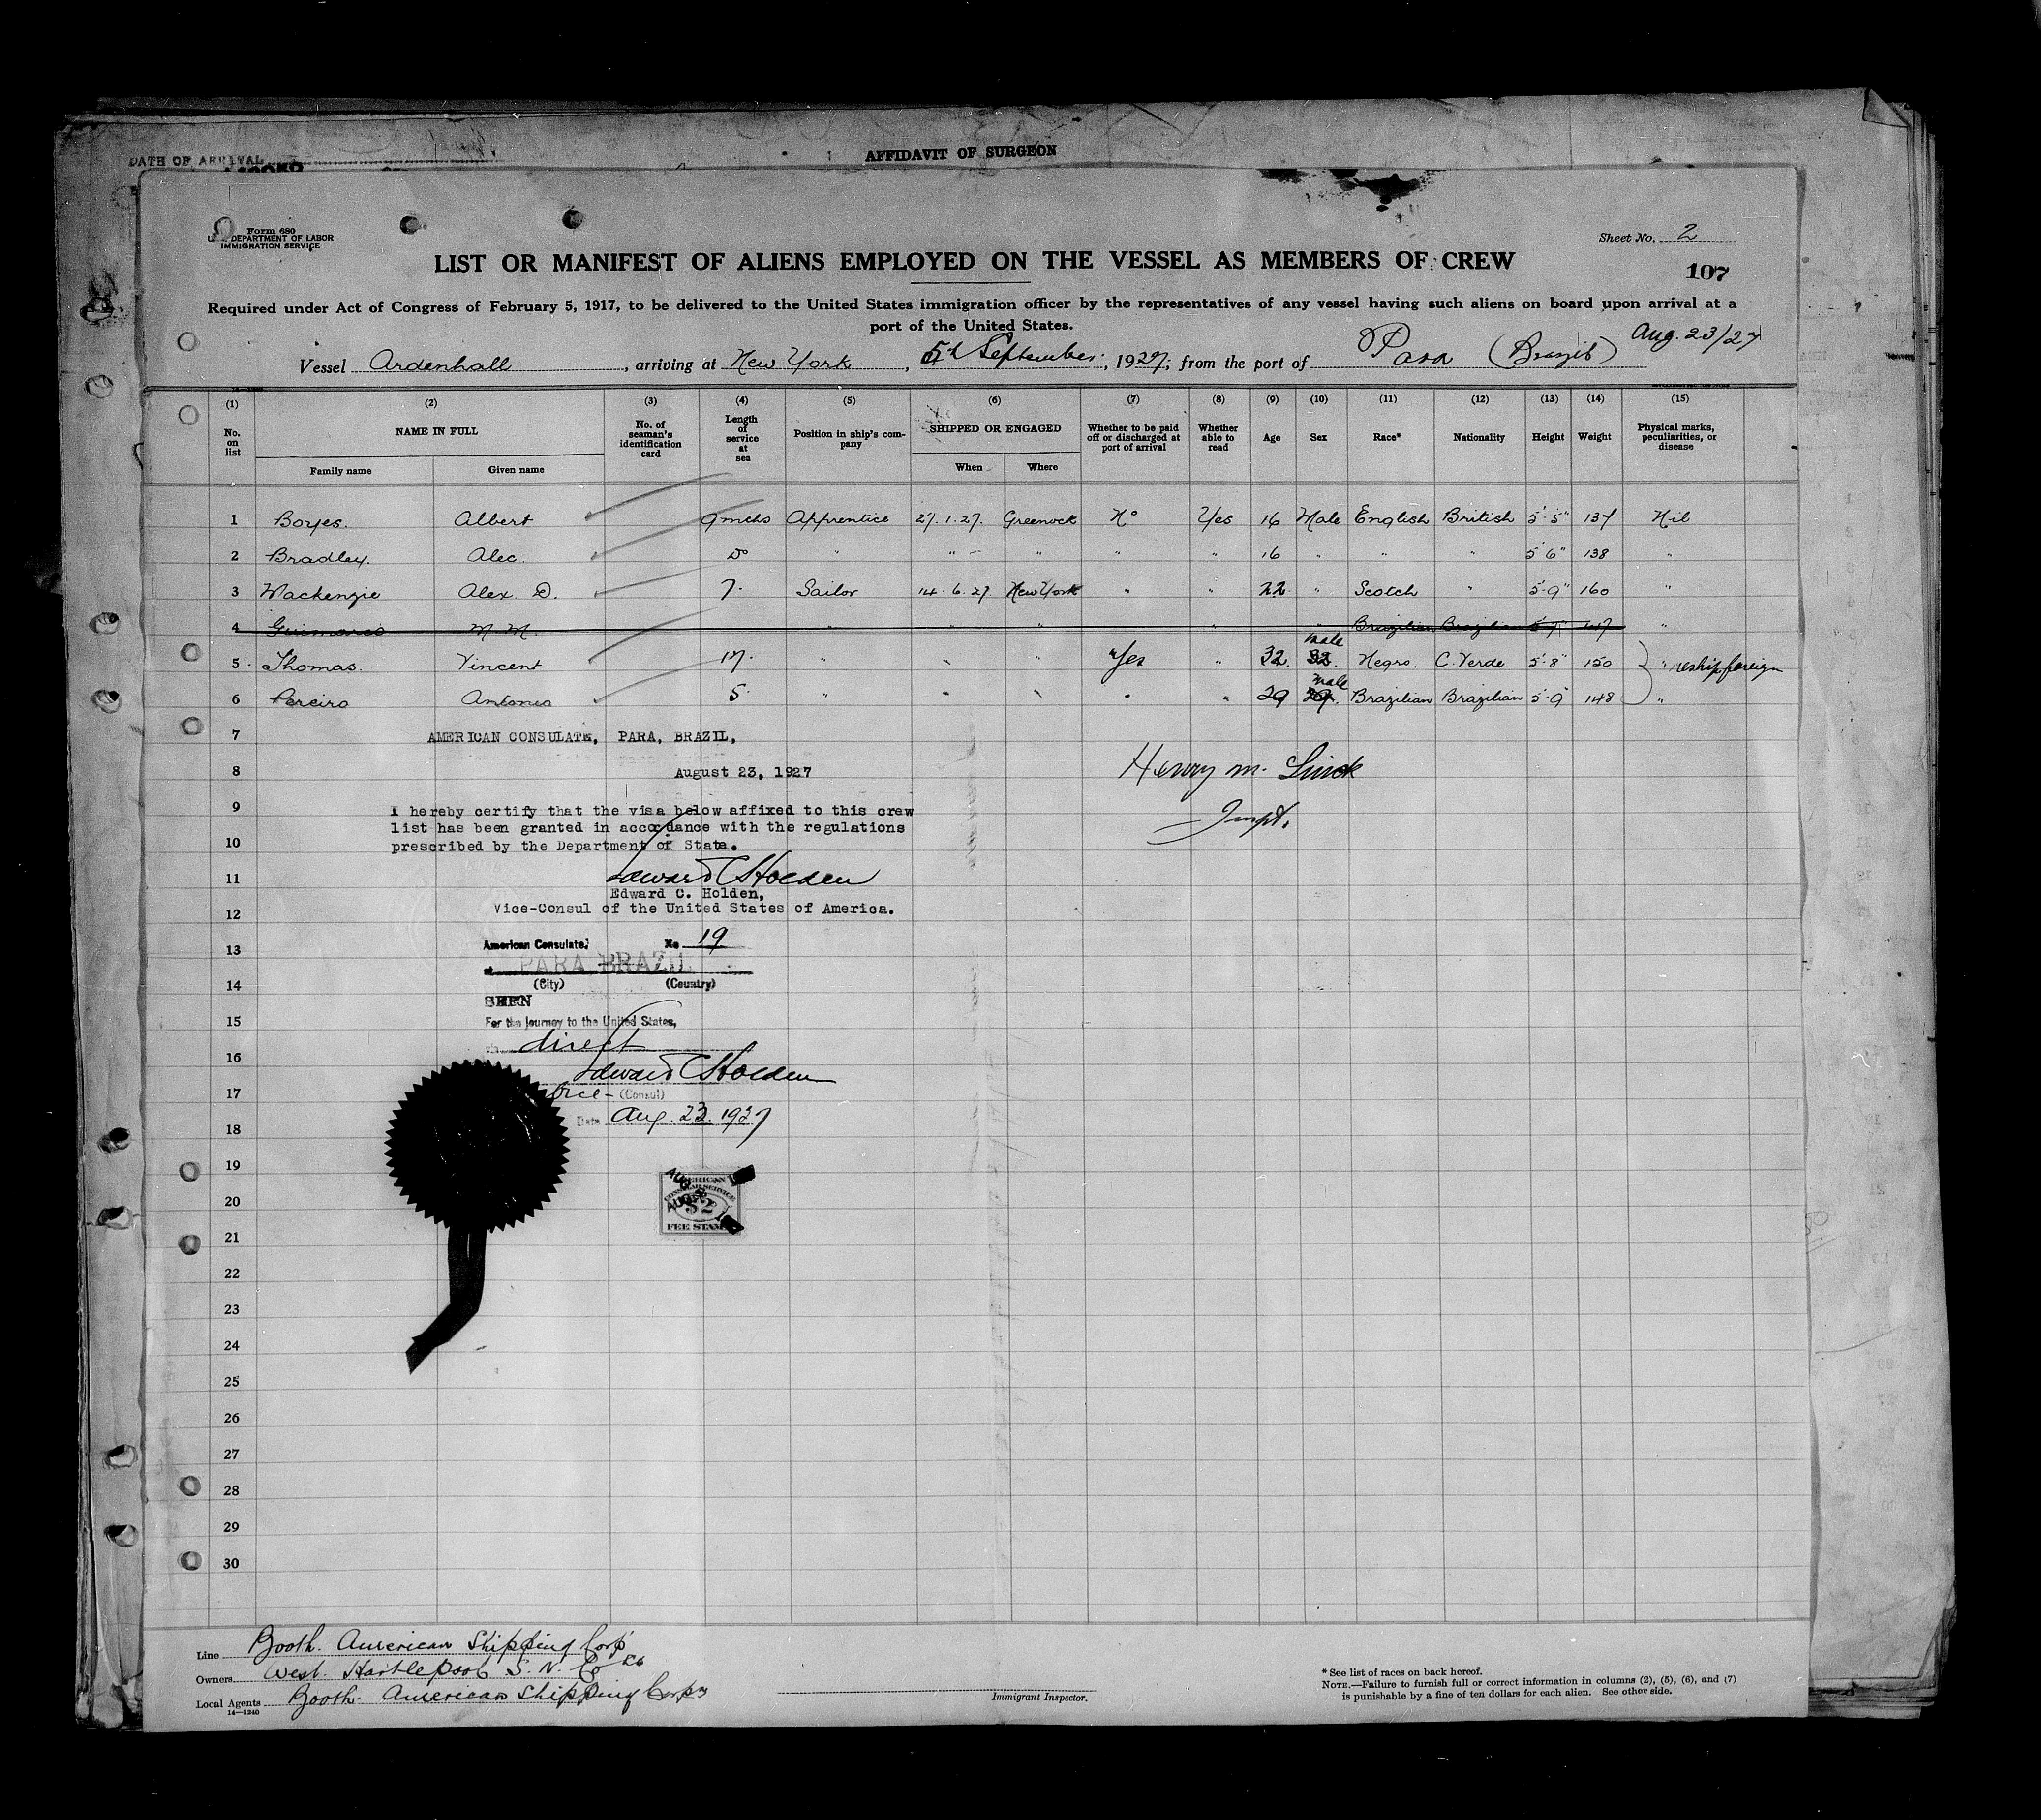 DATE OF ARRIVAL
AFFIDAVIT OF SURGEON
Form 680
U. S. DEPARTMENT OF LABOR
IMMIGRATION SERVICE
Sheet No. 2
LIST OR MANIFEST OF ALIENS EMPLOYED ON THE VESSEL AS MEMBERS OF CREW
107
Required under Act of Congress of February 5, 1917, to be delivered to the United States immigration officer by the representatives of any vessel having such aliens on board upon arrival at a
port of the United States.
Aug. 23/27
Vessel Ardenhall, arriving at New York, 5th September, 1927, from the port of Para (Brazil)
(1) (2) (3) (4) (5) (6) (7) (8) (9) (10) (11) (12) (13) (14) (15)
No. on list NAME IN FULL No. of seaman's identification card Length of service at sea Position in ship's company SHIPPED OR ENGAGED Whether to be paid off or discharged at port of arrival Whether able to read Age Sex Race* Nationality Height Weight Physical marks, peculiarities, or disease
Family name Given name When Where
1 Boyes. Albert 9 mths Apprentice 27.1.27. Greenock No Yes 16 Male English British 5'-5" 137 Nil
2 Bradley. Alec. Do " " " " " 16 " " " 5'6" 138 "
3 Mackenzie Alex. D. 7. Sailor 14.6.27 New York " " 22 " Scotch " 5'-9" 160 "
4 Guimares M. M. " " " " " Brazilian Brazilian 5'-7 147 "
5. Thomas. Vincent 17. " " " Yes " 32. Male 32. Negro. C. Verde 5'-8" 150 " reship foreign
6 Pereiro Antonio 5. " " " " " 29 Male 29. Brazilian Brazilian 5'-9" 148 "
7 AMERICAN CONSULATE, PARA, BRAZIL,
8 August 23, 1927 Henry M. Linck
9 I hereby certify that the visa below affixed to this crew
list has been granted in accordance with the regulations Inspt.
10 prescribed by the Department of State.
11 Edward C Holden
Edward C. Holden,
12 Vice-Consul of the United States of America.
13 American Consulate. No 19
at PARA BRAZIL
14 (City) (Country)
SEEN
15 For the journey to the United States,
direct
16 Edward C Holden
17 Vice- (Consul)
18 Date Aug. 23. 1927
19
20 AMERICAN CONSULAR SERVICE $2 FEE STAMP
21
22
23
24
25
26
27
28
29
30
Line Booth American Shipping Corp
Owners West Hartlepool S. N. Co Ld
Local Agents Booth American Shipping Corpn
14—1240
Immigrant Inspector.
* See list of races on back hereof.
NOTE.—Failure to furnish full or correct information in columns (2), (5), (6), and (7)
is punishable by a fine of ten dollars for each alien. See other side.